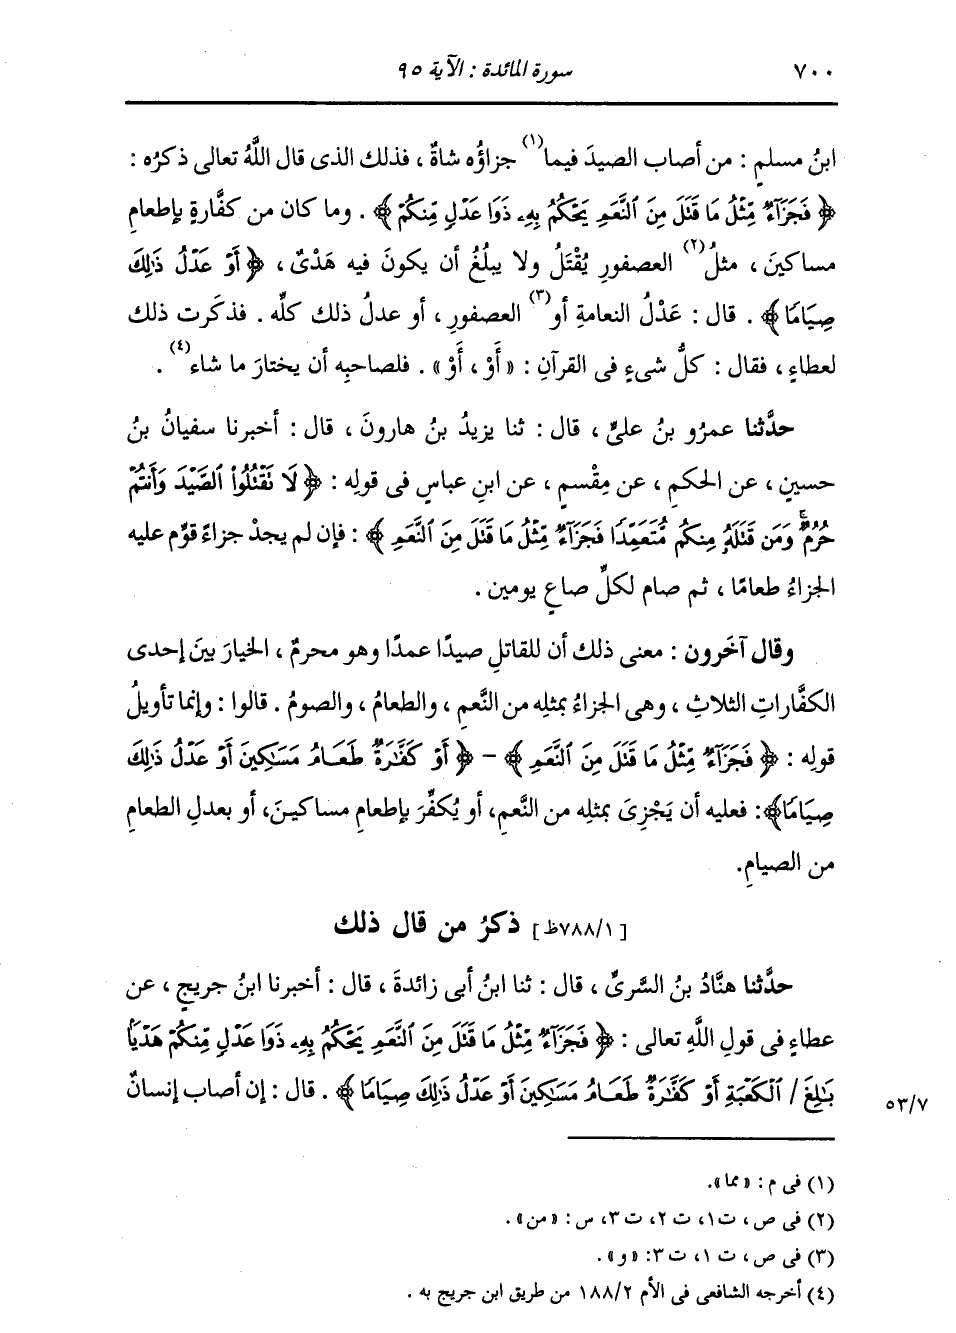 ٧٠٠ سورة المائدة : الآية ٩٥
ابنُ مسلمٍ : من أصاب الصيدَ فيما(١) جزاؤُه شاةٌ ، فذلك الذى قال اللَّهُ تعالى ذكرُه :
﴿ فَجَزَآءٌ مِّثْلُ مَا قَتَلَ مِنَ ٱلنَّعَمِ يَحْكُمُ بِهِۦ ذَوَا عَدْلٍ مِّنكُمْ ﴾ . وما كان من كفَّارةٍ بإطعامِ
مساكينَ ، مثلُ(٢) العصفورِ يُقْتَلُ ولا يبلُغُ أن يكونَ فيه هَدْىٌ ، ﴿ أَوْ عَدْلُ ذَٰلِكَ
صِيَامًا ﴾ . قال : عَدْلُ النعامةِ أو(٣) العصفورِ ، أو عدلُ ذلك كلِّه . فذكَرت ذلك
لعطاءٍ ، فقال : كلُّ شىءٍ فى القرآنِ : « أَوْ ، أَوْ » . فلصاحبِه أن يختارَ ما شاء(٤) .
حدَّثنا عمرُو بنُ علىٍّ ، قال : ثنا يزيدُ بنُ هارونَ ، قال : أخبرنا سفيانُ بنُ
حسينٍ ، عن الحكمِ ، عن مِقْسمٍ ، عن ابنِ عباسٍ فى قولِه : ﴿ لَا تَقْتُلُوا۟ ٱلصَّيْدَ وَأَنتُمْ
حُرُمٌ ۚ وَمَن قَتَلَهُۥ مِنكُم مُّتَعَمِّدًا فَجَزَآءٌ مِّثْلُ مَا قَتَلَ مِنَ ٱلنَّعَمِ ﴾ : فإن لم يجدْ جزاءً قوِّم عليه
الجزاءُ طعامًا ، ثم صام لكلِّ صاعٍ يومين .
وقال آخَرون : معنى ذلك أن للقاتلِ صيدًا عمدًا وهو محرمٌ ، الخيارَ بينَ إحدى
الكفَّاراتِ الثلاثِ ، وهى الجزاءُ بمثلِه من النَّعمِ ، والطعامُ ، والصومُ . قالوا : وإنما تأويلُ
قولِه : ﴿ فَجَزَآءٌ مِّثْلُ مَا قَتَلَ مِنَ ٱلنَّعَمِ ﴾ - ﴿ أَوْ كَفَّٰرَةٌ طَعَامُ مَسَٰكِينَ أَوْ عَدْلُ ذَٰلِكَ
صِيَامًا﴾: فعليه أن يَجْزِىَ بمثلِه من النَّعمِ، أو يُكفِّرَ بإطعامِ مساكينَ، أو بعدلِ الطعامِ
من الصيامِ.
[٧٨٨/١ظ] ذكرُ من قال ذلك
حدَّثنا هنَّادُ بنُ السَّرىِّ ، قال : ثنا ابنُ أبى زائدةَ ، قال : أخبرنا ابنُ جريجٍ ، عن
عطاءٍ فى قولِ اللَّهِ تعالى : ﴿ فَجَزَآءٌ مِّثْلُ مَا قَتَلَ مِنَ ٱلنَّعَمِ يَحْكُمُ بِهِۦ ذَوَا عَدْلٍ مِّنكُمْ هَدْيًۢا
بَٰلِغَ / ٱلْكَعْبَةِ أَوْ كَفَّٰرَةٌ طَعَامُ مَسَٰكِينَ أَوْ عَدْلُ ذَٰلِكَ صِيَامًا ﴾ . قال : إن أصاب إنسانٌ
٥٣/٧
(١) فى م : « مما».
(٢) فى ص ، ت١، ت ٢، ت ٣، س : « من» .
(٣) فى ص، ت ١، ت ٣: « و» .
(٤) أخرجه الشافعى فى الأم ١٨٨/٢ من طريق ابن جريج به .